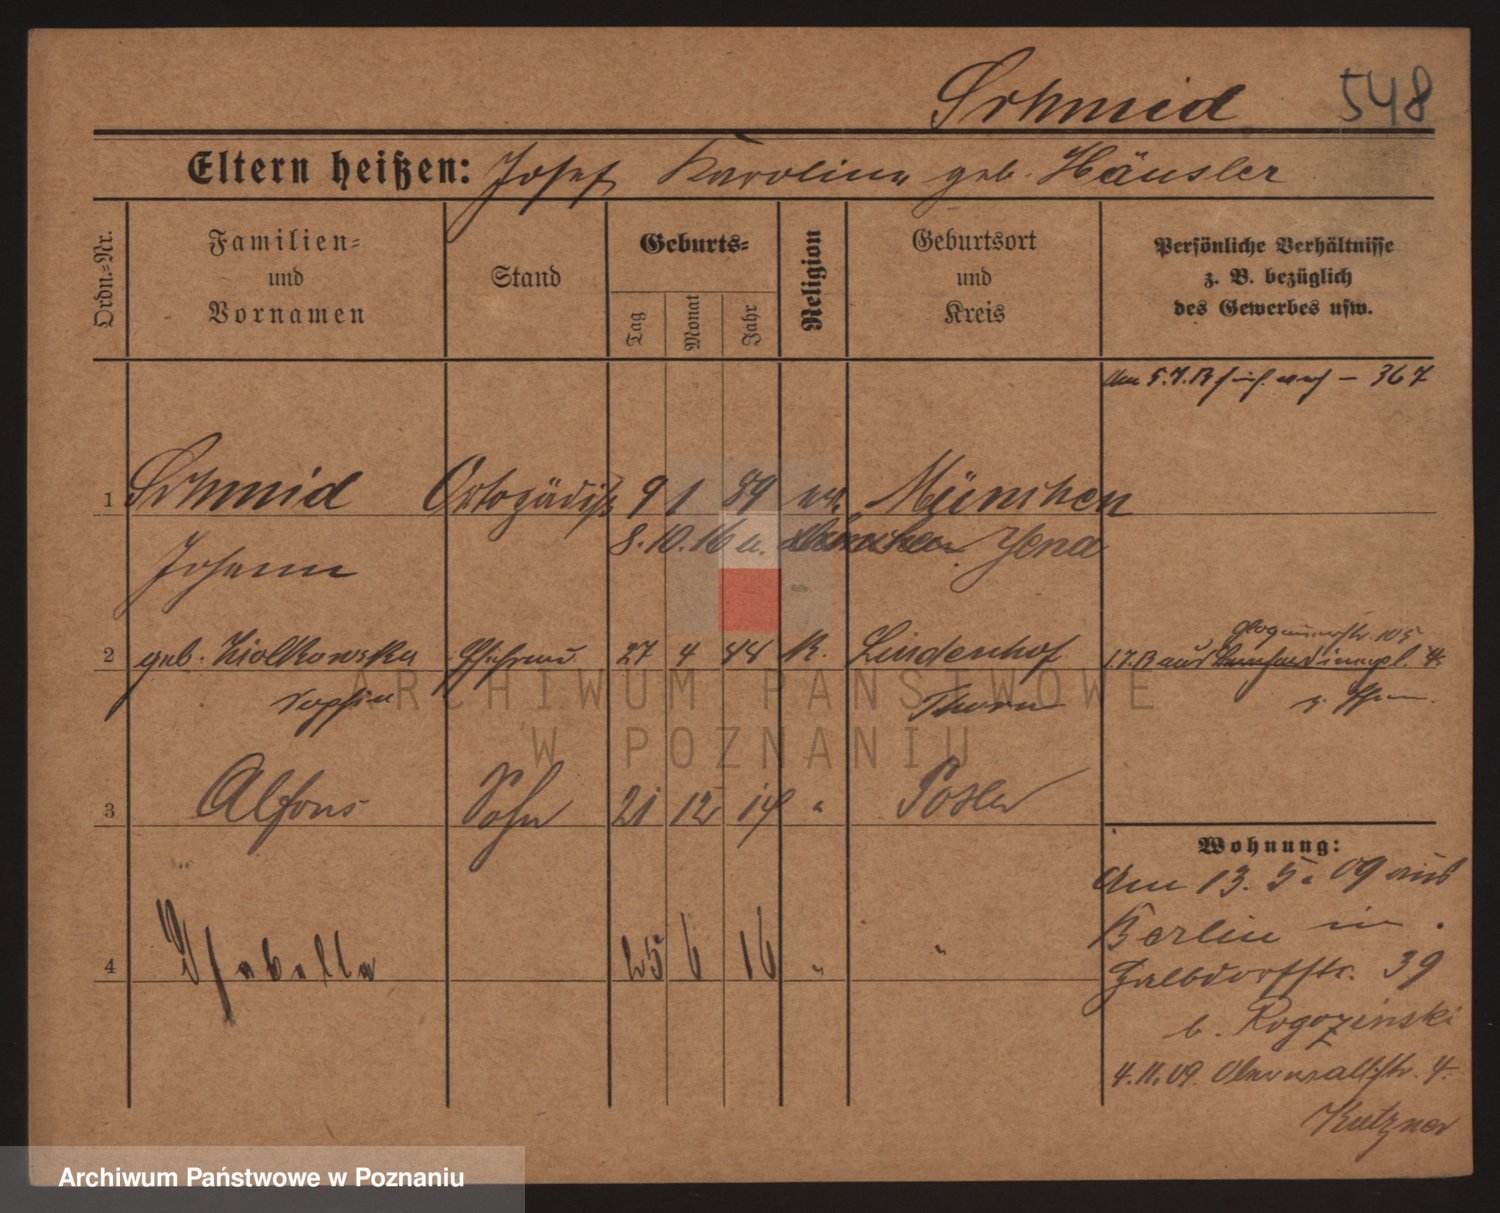 Schmid 548
Eltern heißen: Josef Karolina geb. Häusler
Ordn.=Nr.
Familien=
und
Vornamen
Stand
Geburts=
Tag
Monat
Jahr
Religion
Geburtsort
und
Kreis
Persönliche Verhältnisse
z. B. bezüglich
des Gewerbes usw.
Am 5.7.13 — 367
1 Schmid Ortopädist 9 1 89 München
8.10.16 a. Jena
Johann
2 geb. Ziolkowska Ehefrau 27 4 88 k. Lindenhof
Thorn
Glogauerstr. 105
ARCHIWUM PAŃSTWOWE
W POZNANIU
3 Alfons Sohn 21 12 14 " Posen
4 Isabella 25 6 16 " "
Wohnung:
Am 13. 5. 09 aus
Berlin in
39
b. Rogozinski
4.11.09. Oberwallstr. 4
Kutzner
Archiwum Państwowe w Poznaniu